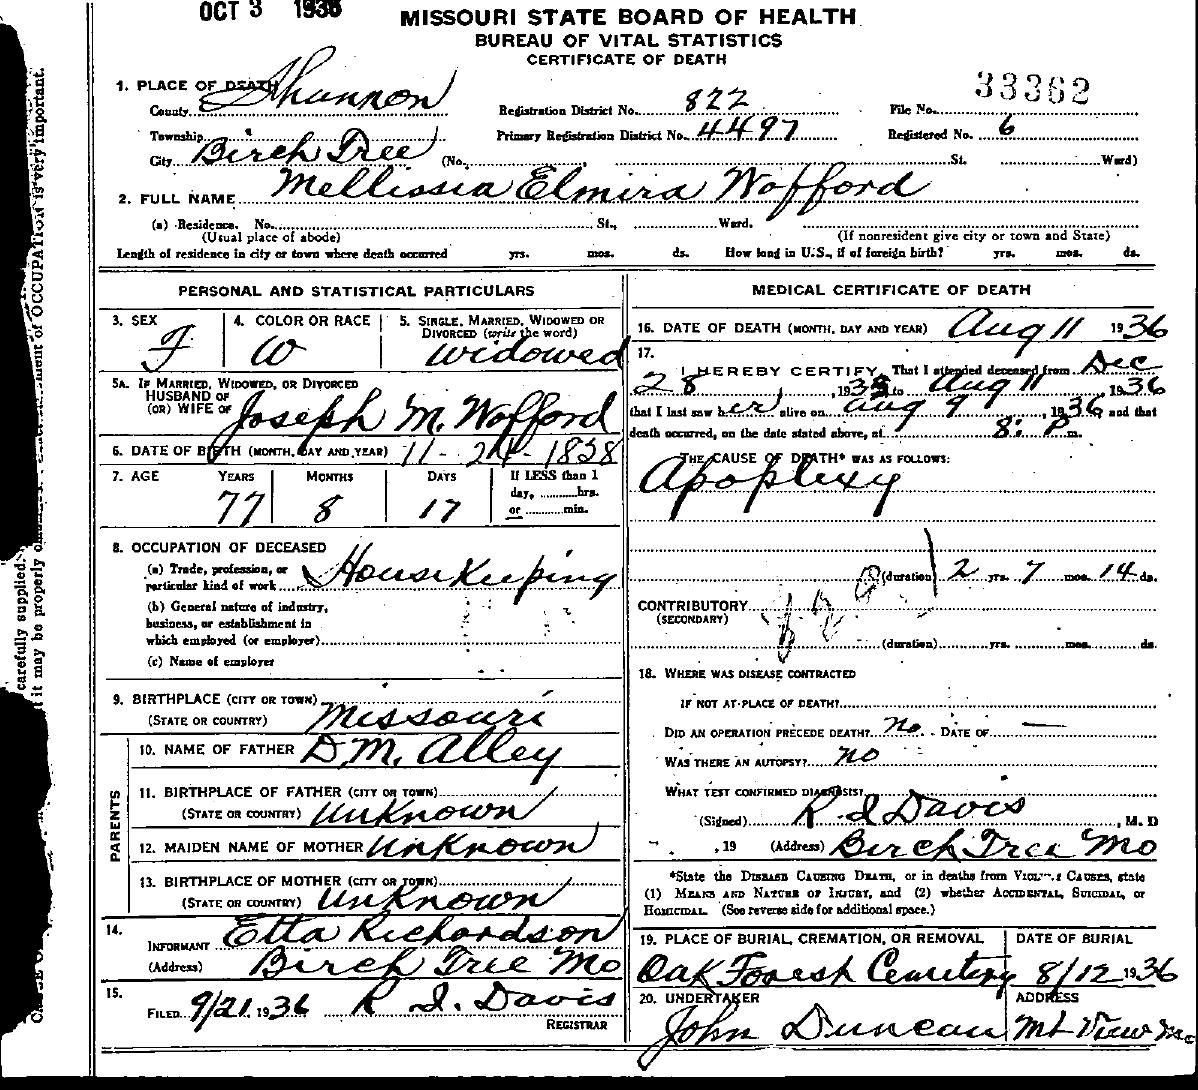 OCT 3 1936
MISSOURI STATE BOARD OF HEALTH
BUREAU OF VITAL STATISTICS
CERTIFICATE OF DEATH
1. PLACE OF DEATH
County Shannon Registration District No. 822 File No. 33362
Township Primary Registration District No. 4497 Registered No. 6
City Birch Tree (No. , St. Ward)
2. FULL NAME Mellissia Elmira Wofford
(a) Residence. No. St., Ward.
(Usual place of abode) (If nonresident give city or town and State)
Length of residence in city or town where death occurred yrs. mos. ds. How long in U.S., if of foreign birth? yrs. mos. ds.
PERSONAL AND STATISTICAL PARTICULARS
3. SEX 4. COLOR OR RACE 5. SINGLE, MARRIED, WIDOWED OR DIVORCED (write the word)
F W Widowed
5A. IF MARRIED, WIDOWED, OR DIVORCED
HUSBAND OF
(OR) WIFE OF Joseph M. Wofford
6. DATE OF BIRTH (MONTH, DAY AND YEAR) 11-24-1858
7. AGE YEARS MONTHS DAYS If LESS than 1
day, hrs.
or min.
77 8 17
8. OCCUPATION OF DECEASED
(a) Trade, profession, or
particular kind of work HouseKeeping
(b) General nature of industry,
business, or establishment in
which employed (or employer)
(c) Name of employer
9. BIRTHPLACE (CITY OR TOWN)
(STATE OR COUNTRY) Missouri
PARENTS
10. NAME OF FATHER D.M. Alley
11. BIRTHPLACE OF FATHER (CITY OR TOWN)
(STATE OR COUNTRY) UnKnown
12. MAIDEN NAME OF MOTHER UnKnown
13. BIRTHPLACE OF MOTHER (CITY OR TOWN)
(STATE OR COUNTRY) UnKnown
14.
INFORMANT Etta Richardson
(Address) Birch Tree Mo
15.
FILED 9/21 1936 R I. Davis
REGISTRAR
MEDICAL CERTIFICATE OF DEATH
16. DATE OF DEATH (MONTH, DAY AND YEAR) Aug 11 1936
17.
I HEREBY CERTIFY, That I attended deceased from Dec
28, 193 to Aug 11 1936
that I last saw her alive on Aug 9, 1936 and that
death occurred, on the date stated above, at 8: P m.
THE CAUSE OF DEATH* WAS AS FOLLOWS:
Apoplexy
(duration) 2 yrs. 7 mos. 14 ds.
CONTRIBUTORY
(SECONDARY)
(duration) yrs. mos. ds.
18. WHERE WAS DISEASE CONTRACTED
IF NOT AT PLACE OF DEATH?
DID AN OPERATION PRECEDE DEATH? no. DATE OF —
WAS THERE AN AUTOPSY? no
WHAT TEST CONFIRMED DIAGNOSIS?
(Signed) R. I Davis, M. D
, 19 (Address) Birch Tree Mo
*State the DISEASE CAUSING DEATH, or in deaths from VIOLENT CAUSES, state
(1) MEANS AND NATURE OF INJURY, and (2) whether ACCIDENTAL, SUICIDAL, or
HOMICIDAL. (See reverse side for additional space.)
19. PLACE OF BURIAL, CREMATION, OR REMOVAL DATE OF BURIAL
Oak Forest Cemetery 8/12 1936
20. UNDERTAKER ADDRESS
John Duncan Mt View Mo
carefully supplied.
it may be properly
of OCCUPATION is very important.